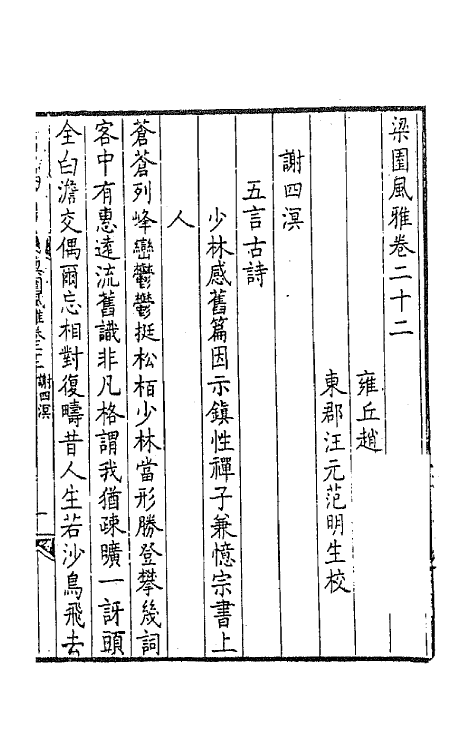 梁園風雅卷二十二
雍丘趙
東郡汪元范明生校
謝四溟
五言古詩
少林感舊篇因示鎮性禪子兼憶宗書上
人
蒼蒼列峰巒鬱鬱挺松栢少林當形勝登攀幾詞
客中有惠遠流舊識非凡格謂我猶疎曠一訝頭
全白澹交偶爾忘相對復疇昔人生若沙鳥飛去
梁園風雅卷二十二
謝四溟
一